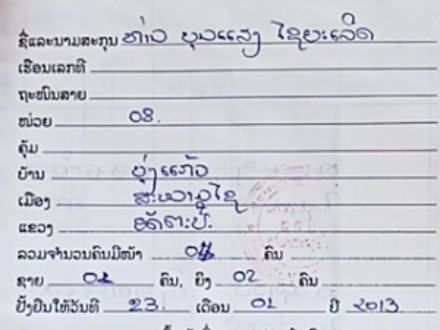 ຊື່ແລະນາມສະກຸນ ທ່າວ ບຸນແສງ ໄຊຍະເລີດ
ເຮືອນເລກທີ
ຖະໜົນສາຍ
ໜ່ວຍ 08.
ຄຸ້ມ
ບ້ານ ບຸ່ງແກ້ວ
ເມືອງ ສະໜາມໄຊ
ແຂວງ ອັດຕະປື.
ລວມຈຳນວນຄົນມີໜ້າ ຄົນ
ຊາຍ ຄົນ, ຍິງ 02 ຄົນ
ປັ້ງປຶ້ມໃຫ້ວັນທີ 23. ເດືອນ 01 ປີ 2013